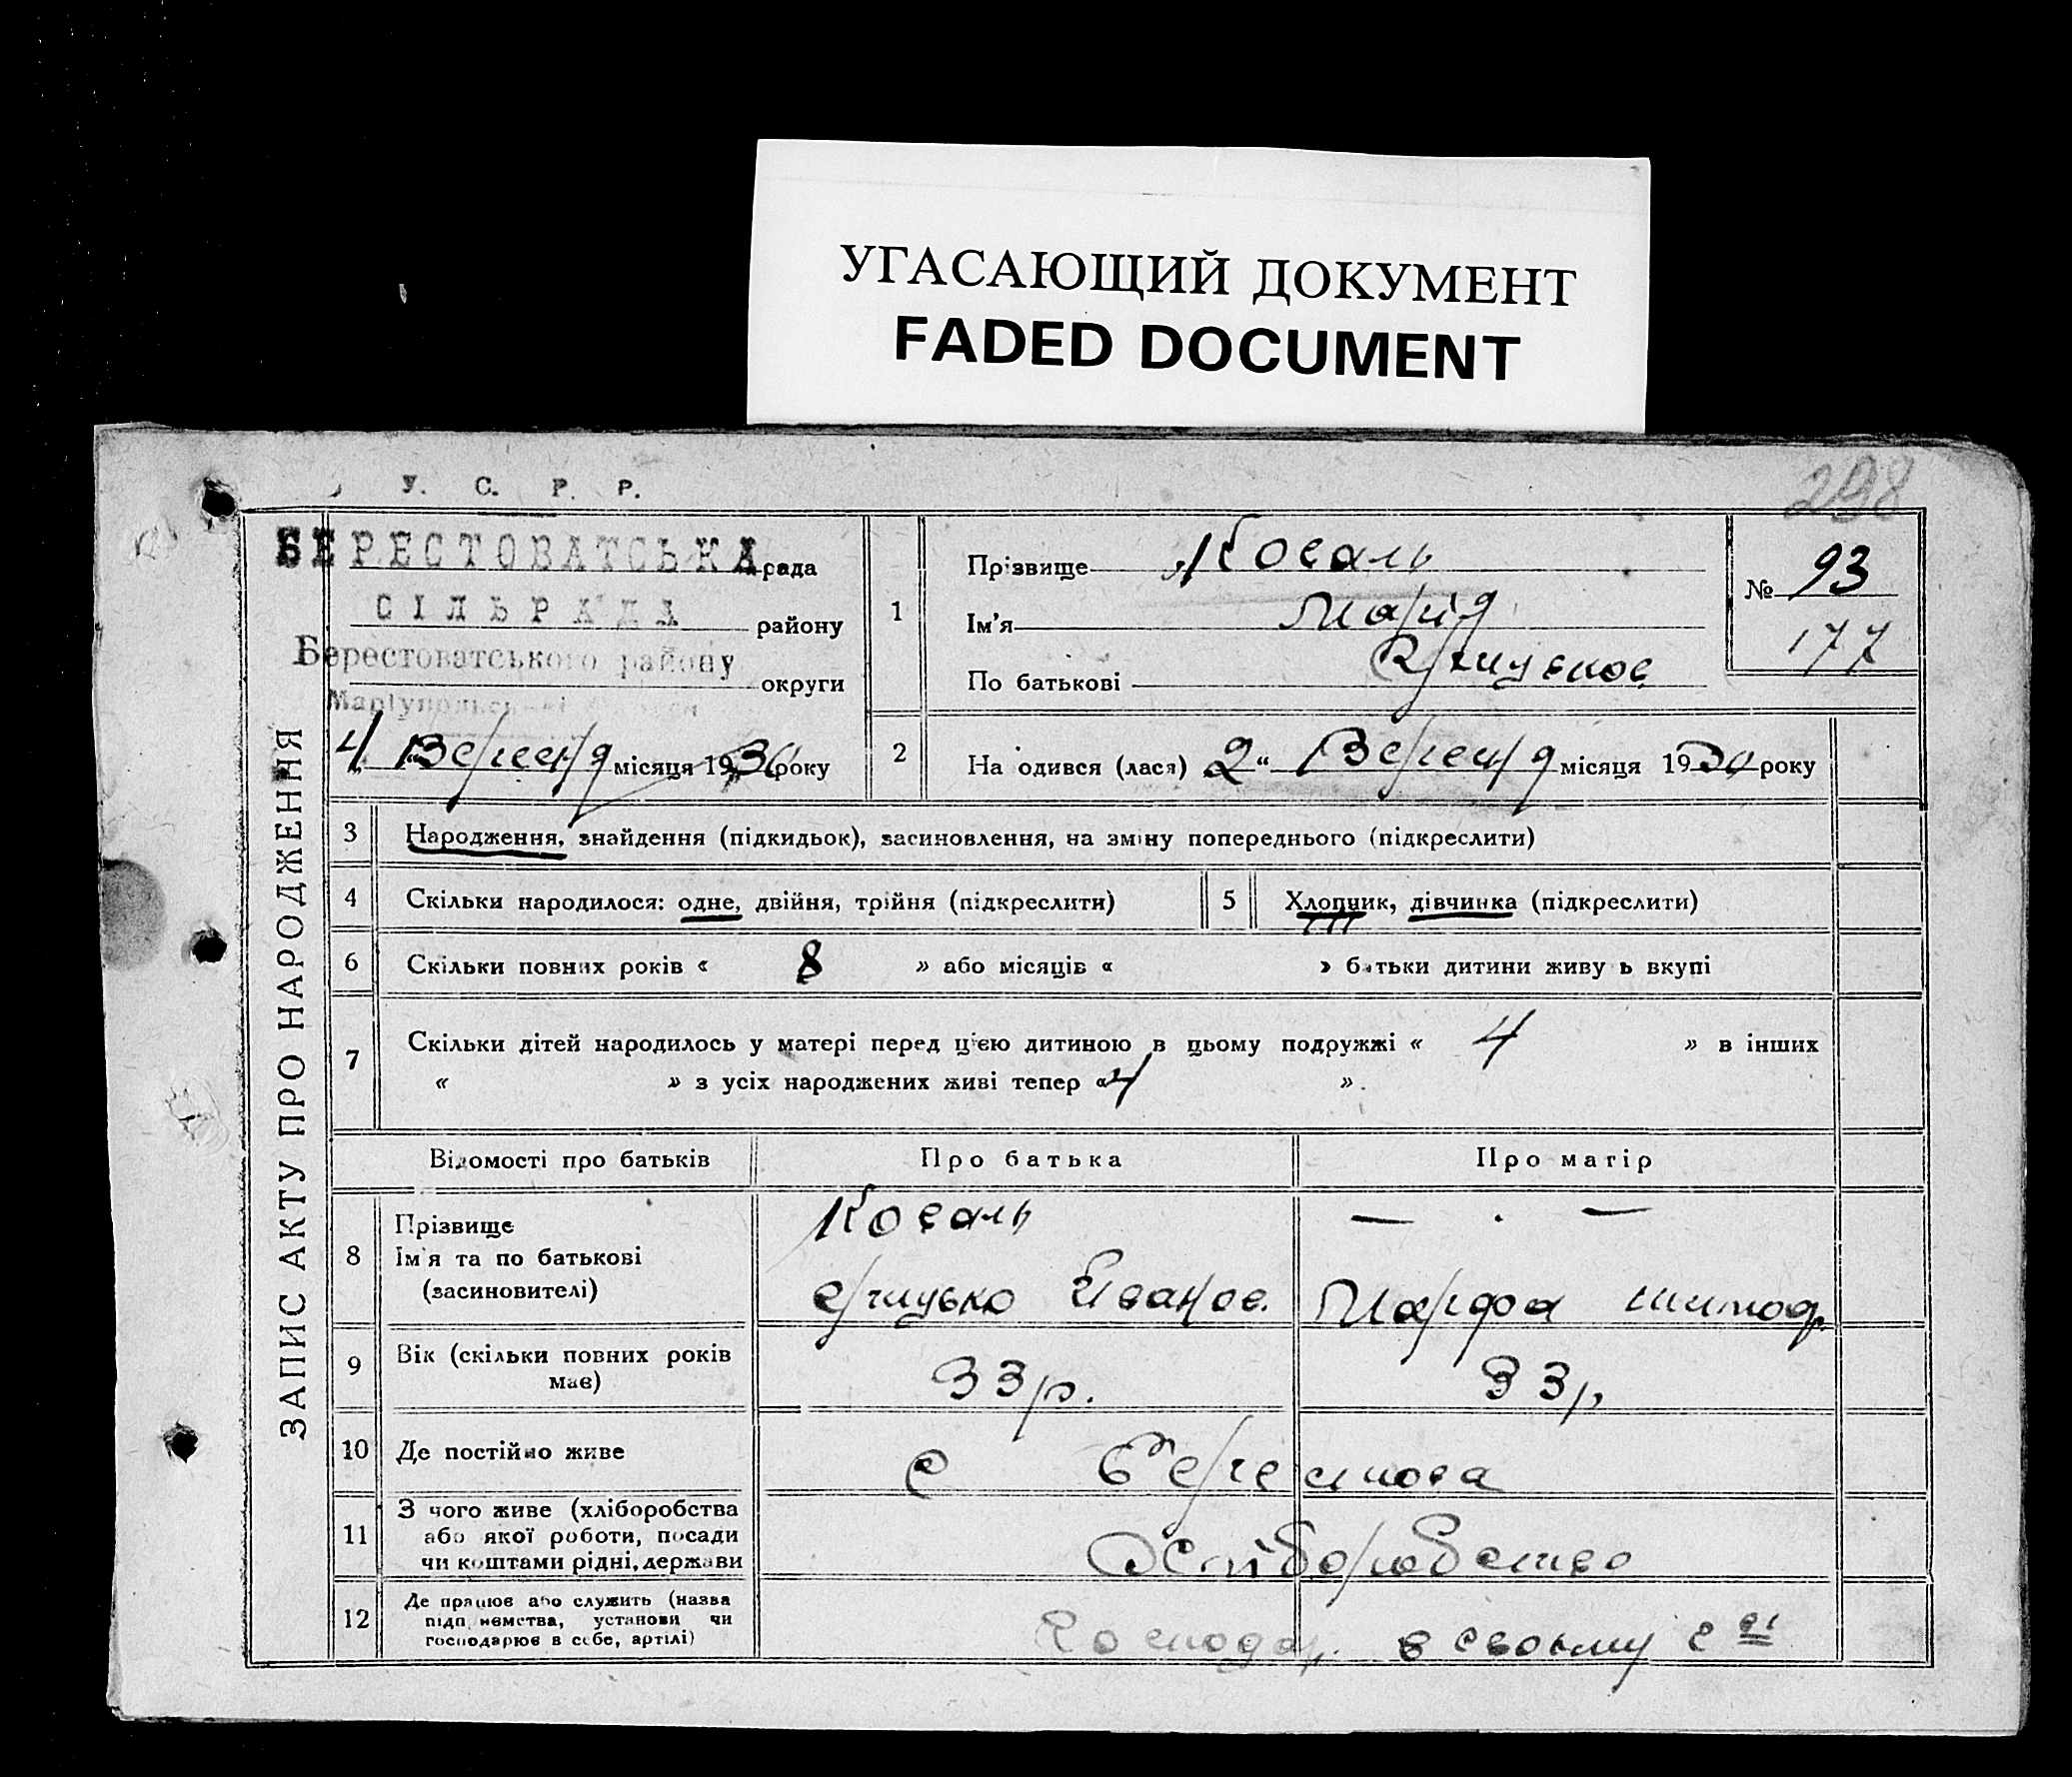 УГАСАЮЩИЙ ДОКУМЕНТ
FADED DOCUMENT
У. С. Р. Р.
298
БЕРЕСТОВАТСЬКА рада
СІЛЬРАДА району
Берестоватського району
округи
4 Вересня місяця 1930 року
ЗАПИС АКТУ ПРО НАРОДЖЕННЯ
1 Прізвище Коваль
Ім'я Марія
По батькові
№ 93
177
2 Народився (лася) 2 " Вересня місяця 1930 року
3 Народження, знайдення (підкидьок), засиновлення, на зміну попереднього (підкреслити)
4 Скільки народилося: одне, двійня, трійня (підкреслити)
5 Хлопчик, дівчинка (підкреслити)
6 Скільки повних років « 8 » або місяців « » батьки дитини живуть вкупі
7 Скільки дітей народилось у матері перед цією дитиною в цьому подружжі « 4 » в інших
« » з усіх народжених живі тепер « 4 ».
Відомості про батьків Про батька Про матір
8 Прізвище Коваль — . —
Ім'я та по батькові
(засиновителі) Іванов. Марфа
9 Вік (скільки повних років
має) 33 р. 33 р.
10 Де постійно живе с Берестова
11 З чого живе (хліборобства
або якої роботи, посади
чи коштами рідні, держави
Хліборобство
12 Де працює або служить (назва
підприємства, установи чи
господарює в себе, артілі)
Господар. в своему с